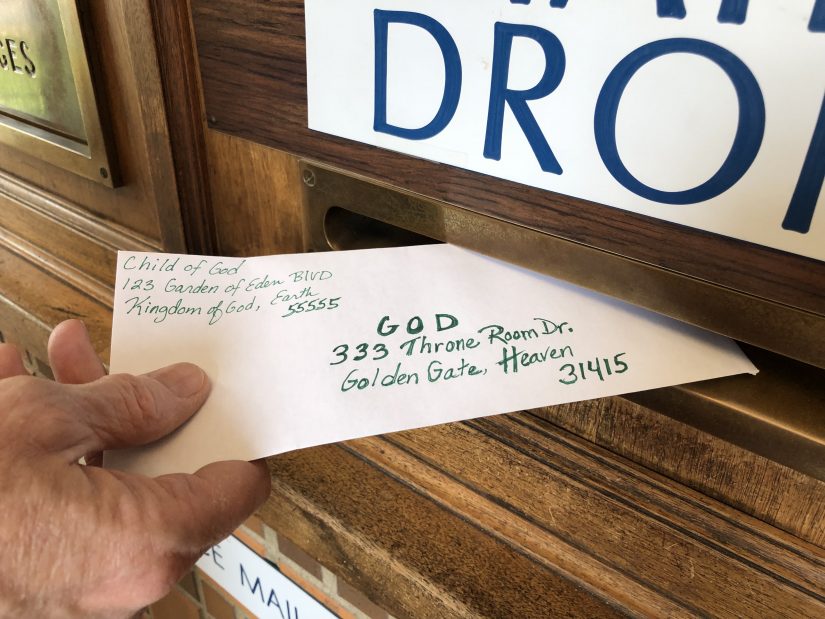 GES
DROP
Child of God
123 Garden of Eden BlVD
Kingdom of God, Earth
55555
GOD
333 Throne Room Dr.
Golden Gate, Heaven
31415
MAIL